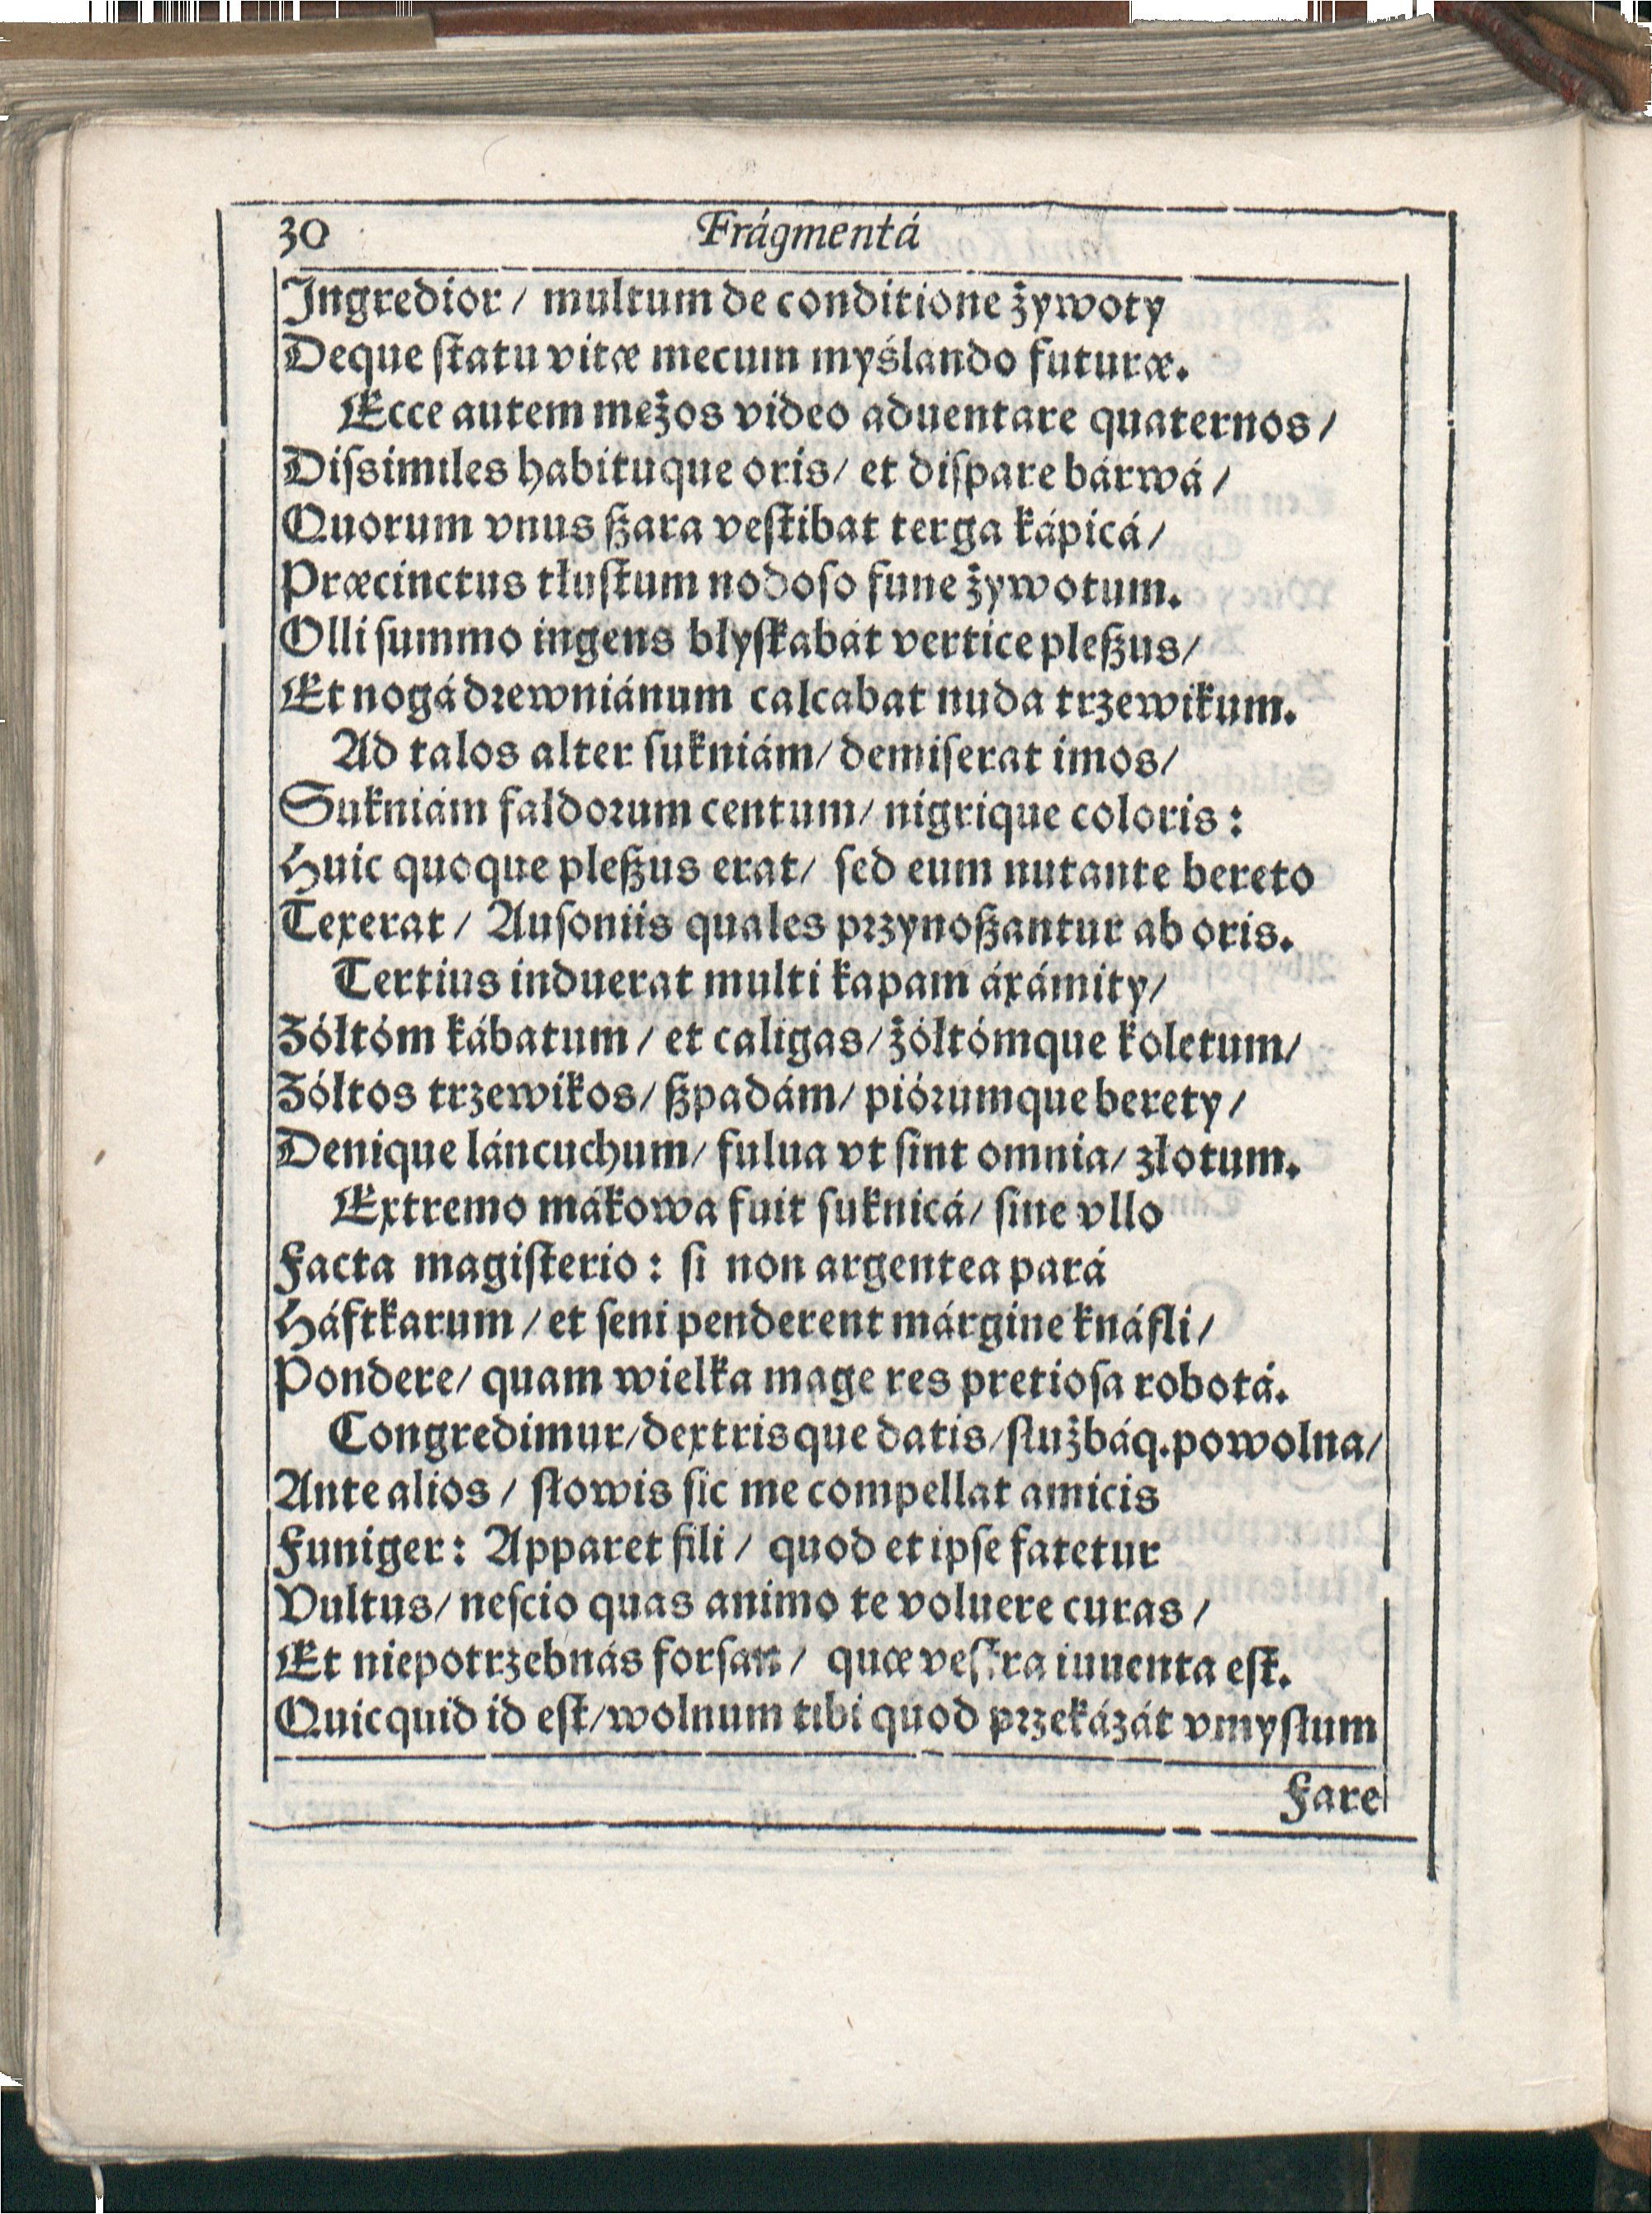 30 Frágmentá
Ingredior / multum de conditione żywoty
Deque ſtatu vitæ mecum myślando futuræ.
Ecce autem mężos video aduentare quaternos /
Diſsimiles habituque oris / et diſpare bárwá /
Quorum vnus ßara veſtibat terga kápicá /
Præcinctus tłuſtum nodoſo fune żywotum.
Olli ſummo ingens blyſkabát vertice pleßus /
Et nogá drewniánum calcabat nuda trzewikum.
Ad talos alter ſukniám / demiſerat imos /
Sukniám fałdorum centum / nigrique coloris :
Huic quoque pleßus erat / ſed eum nutante bereto
Texerat / Auſoniis quales przynoßantur ab oris.
Tertius induerat multi kapam áxámity /
Zółtóm kábatum / et caligas / żółtómque koletum /
Zółtos trzewikos / ßpadám / piórumque berety /
Denique láncuchum / fulua vt ſint omnia / złotum.
Extremo mákowa fuit ſuknicá / ſine vllo
Facta magiſterio : ſi non argentea pará
Háftkarum / et ſeni penderent márgine knáfli /
Pondere / quam wielka mage res pretioſa robotá.
Congredimur / dextrisque datis / ſłużbáq. powolna /
Ante alios / ſłowis ſic me compellat amicis
Funiger : Apparet fili / quod et ipſe fatetur
Vultus / neſcio quas animo te voluere curas /
Et niepotrzebnás forſan / quæ veſtra iuuenta eſt.
Quicquid id eſt / wolnum tibi quod przekázát vmyſłum
Fare